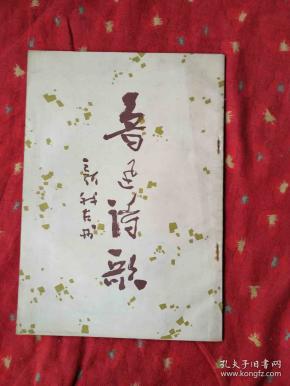 鲁迅诗歌
孔夫子旧书网
www.kongfz.com